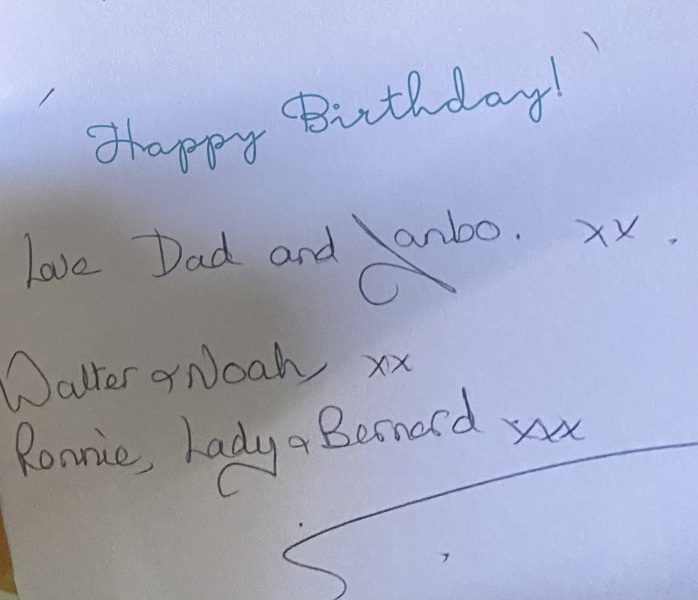 Happy Birthday!
Love Dad and Janbo. xx.
Walter & Noah xx
Ronnie, Lady & Bernard xxx